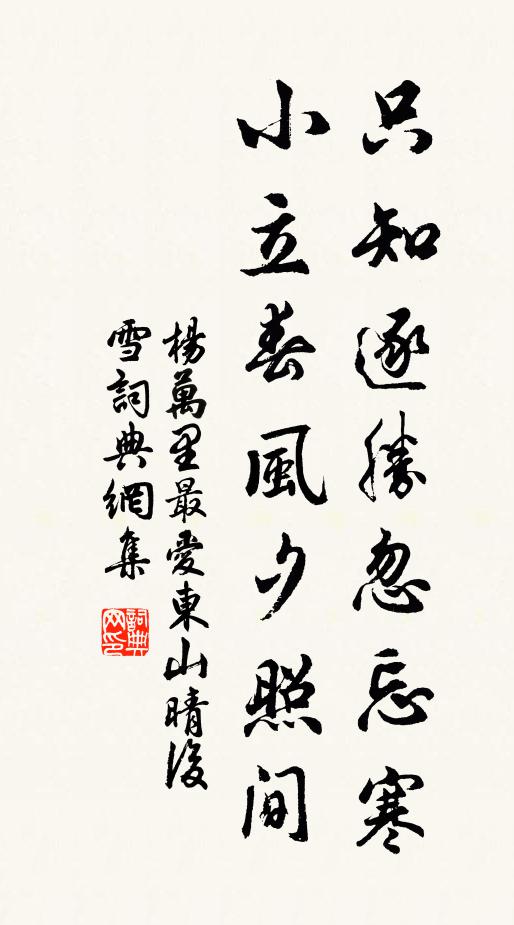 只知逐勝忽忘寒
小立春風夕照間
楊萬里最愛東山晴後
雪詞典網集
詞典
网印